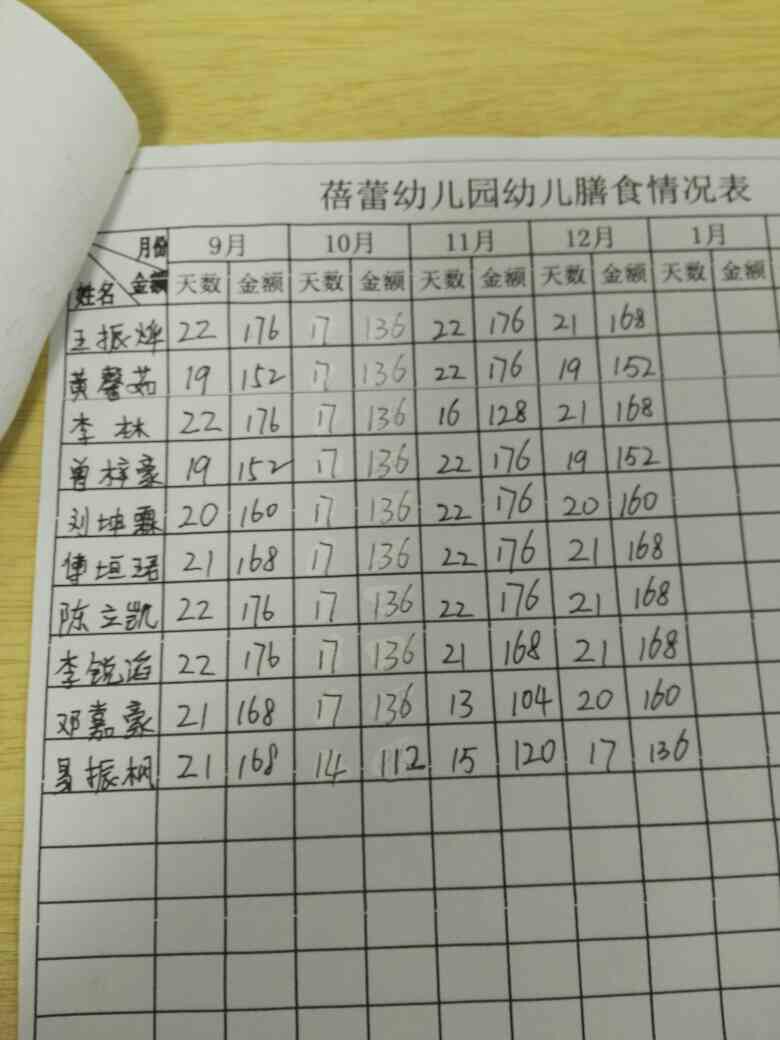 蓓蕾幼儿园幼儿膳食情况表
月份 9月 10月 11月 12月 1月
金额
姓名 天数 金额 天数 金额 天数 金额 天数 金额 天数 金额
王振烨 22 176 17 136 22 176 21 168
黄馨茹 19 152 17 136 22 176 19 152
李林 22 176 17 136 16 128 21 168
曾梓豪 19 152 17 136 22 176 19 152
刘坤霖 20 160 17 136 22 176 20 160
傅垣珺 21 168 17 136 22 176 21 168
陈立凯 22 176 17 136 22 176 21 168
李锐滔 22 176 17 136 21 168 21 168
邓嘉豪 21 168 17 136 13 104 20 160
易振桐 21 168 14 112 15 120 17 136